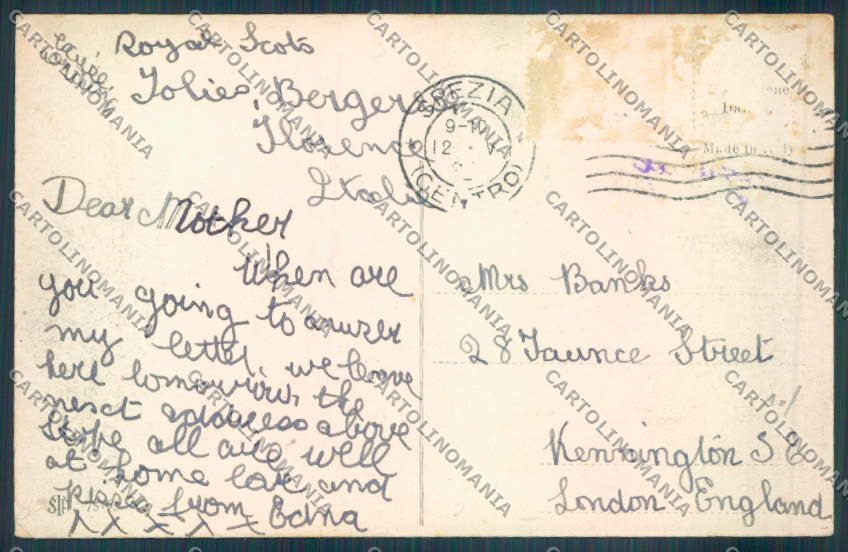 Royal Scots
Folies Bergeres
Florence
Italy
Dear Mother
When are
you going to answer
my letter, we leave
here tomorrow the
next address above
hope all are well
at home love and
from Edna
x x x x x
SPEZIA
9-10
12
(CENTRO)
Made in Italy
Mrs Banks
28 Faunce Street
Kennington S E
London England
CARTOLINOMANIA